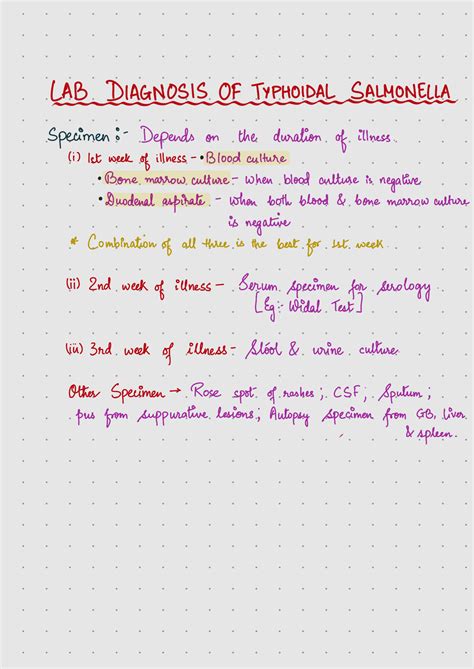 LAB DIAGNOSIS OF TYPHOIDAL SALMONELLA
Specimen :- Depends on the duration of illness.
(i) 1st week of illness - • Blood culture
• Bone marrow culture - when blood culture is negative
• Duodenal aspirate - when both blood & bone marrow culture
is negative
* Combination of all three is the best for 1st week.
(ii) 2nd week of illness - Serum specimen for serology
[Eg:- Widal Test]
(iii) 3rd week of illness - Stool & urine culture
Other Specimen → Rose spot of rashes ; CSF ; Sputum ;
pus from suppurative lesions ; Autopsy specimen from GB, liver
& spleen.